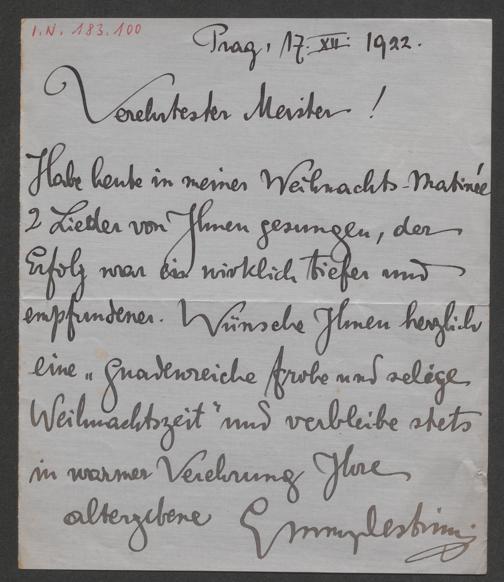 I.N. 183.100
Prag, 17. XII. 1922.
Verehrtester Meister!
Habe heute in meiner Weihnachts-Matinée
2 Lieder von Ihnen gesungen, der
Erfolg war ein wirklich tiefer und
empfundener. Wünsche Ihnen herzlich
eine „Gnadenreiche frohe und selige
Weihnachtszeit" und verbleibe stets
in warmer Verehrung Ihre
altergebene Emmy Destinn